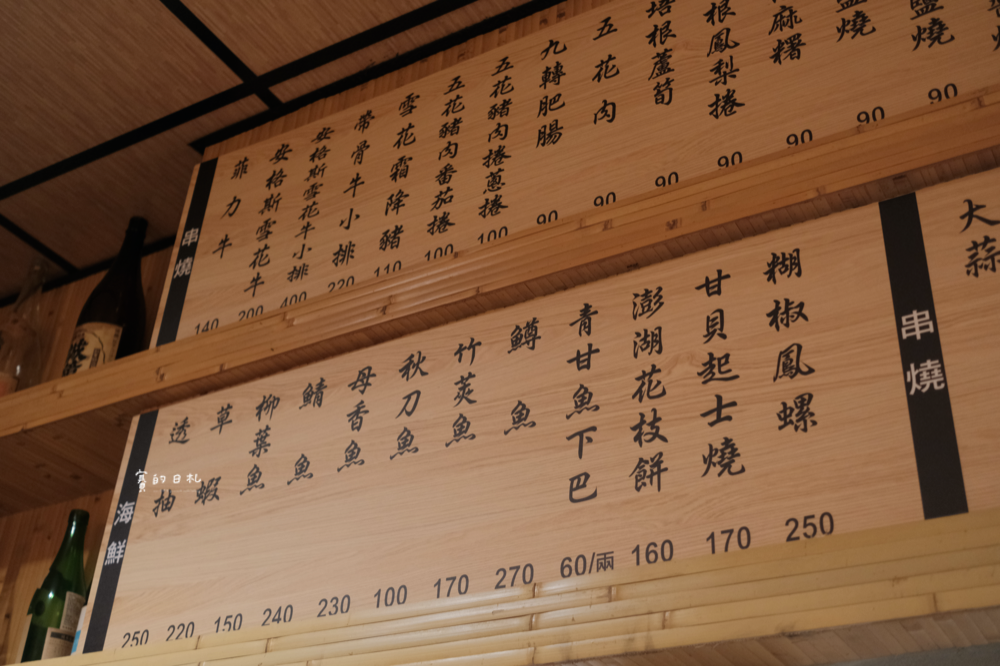 串燒
菲力牛 140
安格斯雪花牛 200
安格斯雪花牛小排 400
帶骨牛小排 220
雪花霜降豬 110
五花豬肉番茄捲 100
五花豬肉捲蔥捲 100
九轉肥腸 90
五花肉 90
培根蘆筍 90
根鳳梨捲 90
麻糬 90
鹽燒 90
鹽燒 90
海鮮
透抽 250
草蝦 220
柳葉魚 150
鯖魚 240
母香魚 230
秋刀魚 100
竹莢魚 170
鱒魚 270
青甘魚下巴 60/兩
澎湖花枝餅 160
甘貝起士燒 170
糊椒鳳螺 250
串燒
大蒜
寶的日札